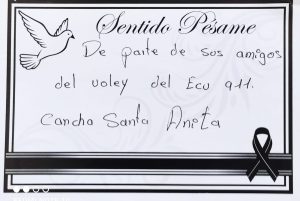 Sentido Pésame
De parte de sus amigos
del voley del Ecu 911.
Cancha Santa Anita